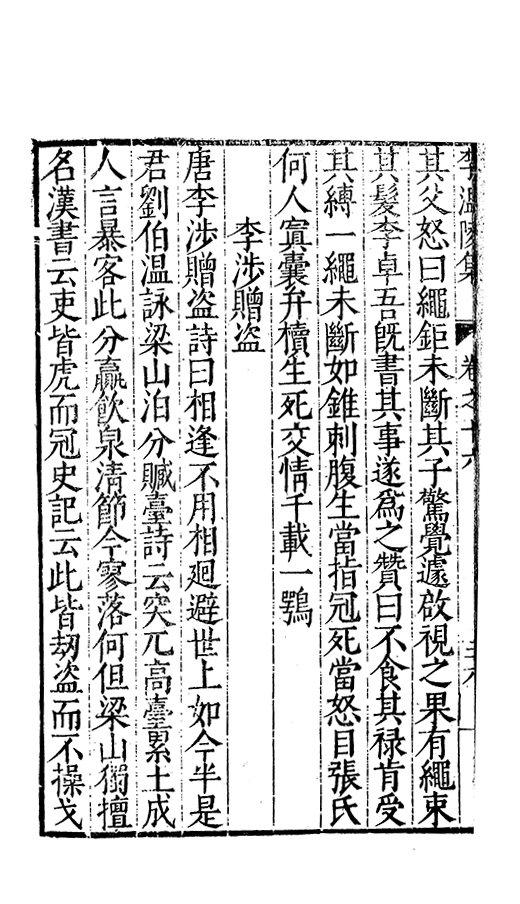 李溫陵集 卷之十六
其父怒曰繩鉅未斷其子驚覺遽啟視之果有繩束
其髮李卓吾既書其事遂爲之贊曰不食其祿肯受
其縛一繩未斷如錐刺腹生當指冠死當怒目張氏
何人寘囊弁櫝生死交情千載一鶚
李涉贈盜
唐李涉贈盜詩曰相逢不用相迴避世上如今半是
君劉伯温詠梁山泊分贓臺詩云突兀高臺累土成
人言暴客此分贏飲泉清節今寥落何但梁山獨擅
名漢書云吏皆虎而冠史記云此皆刼盜而不操戈